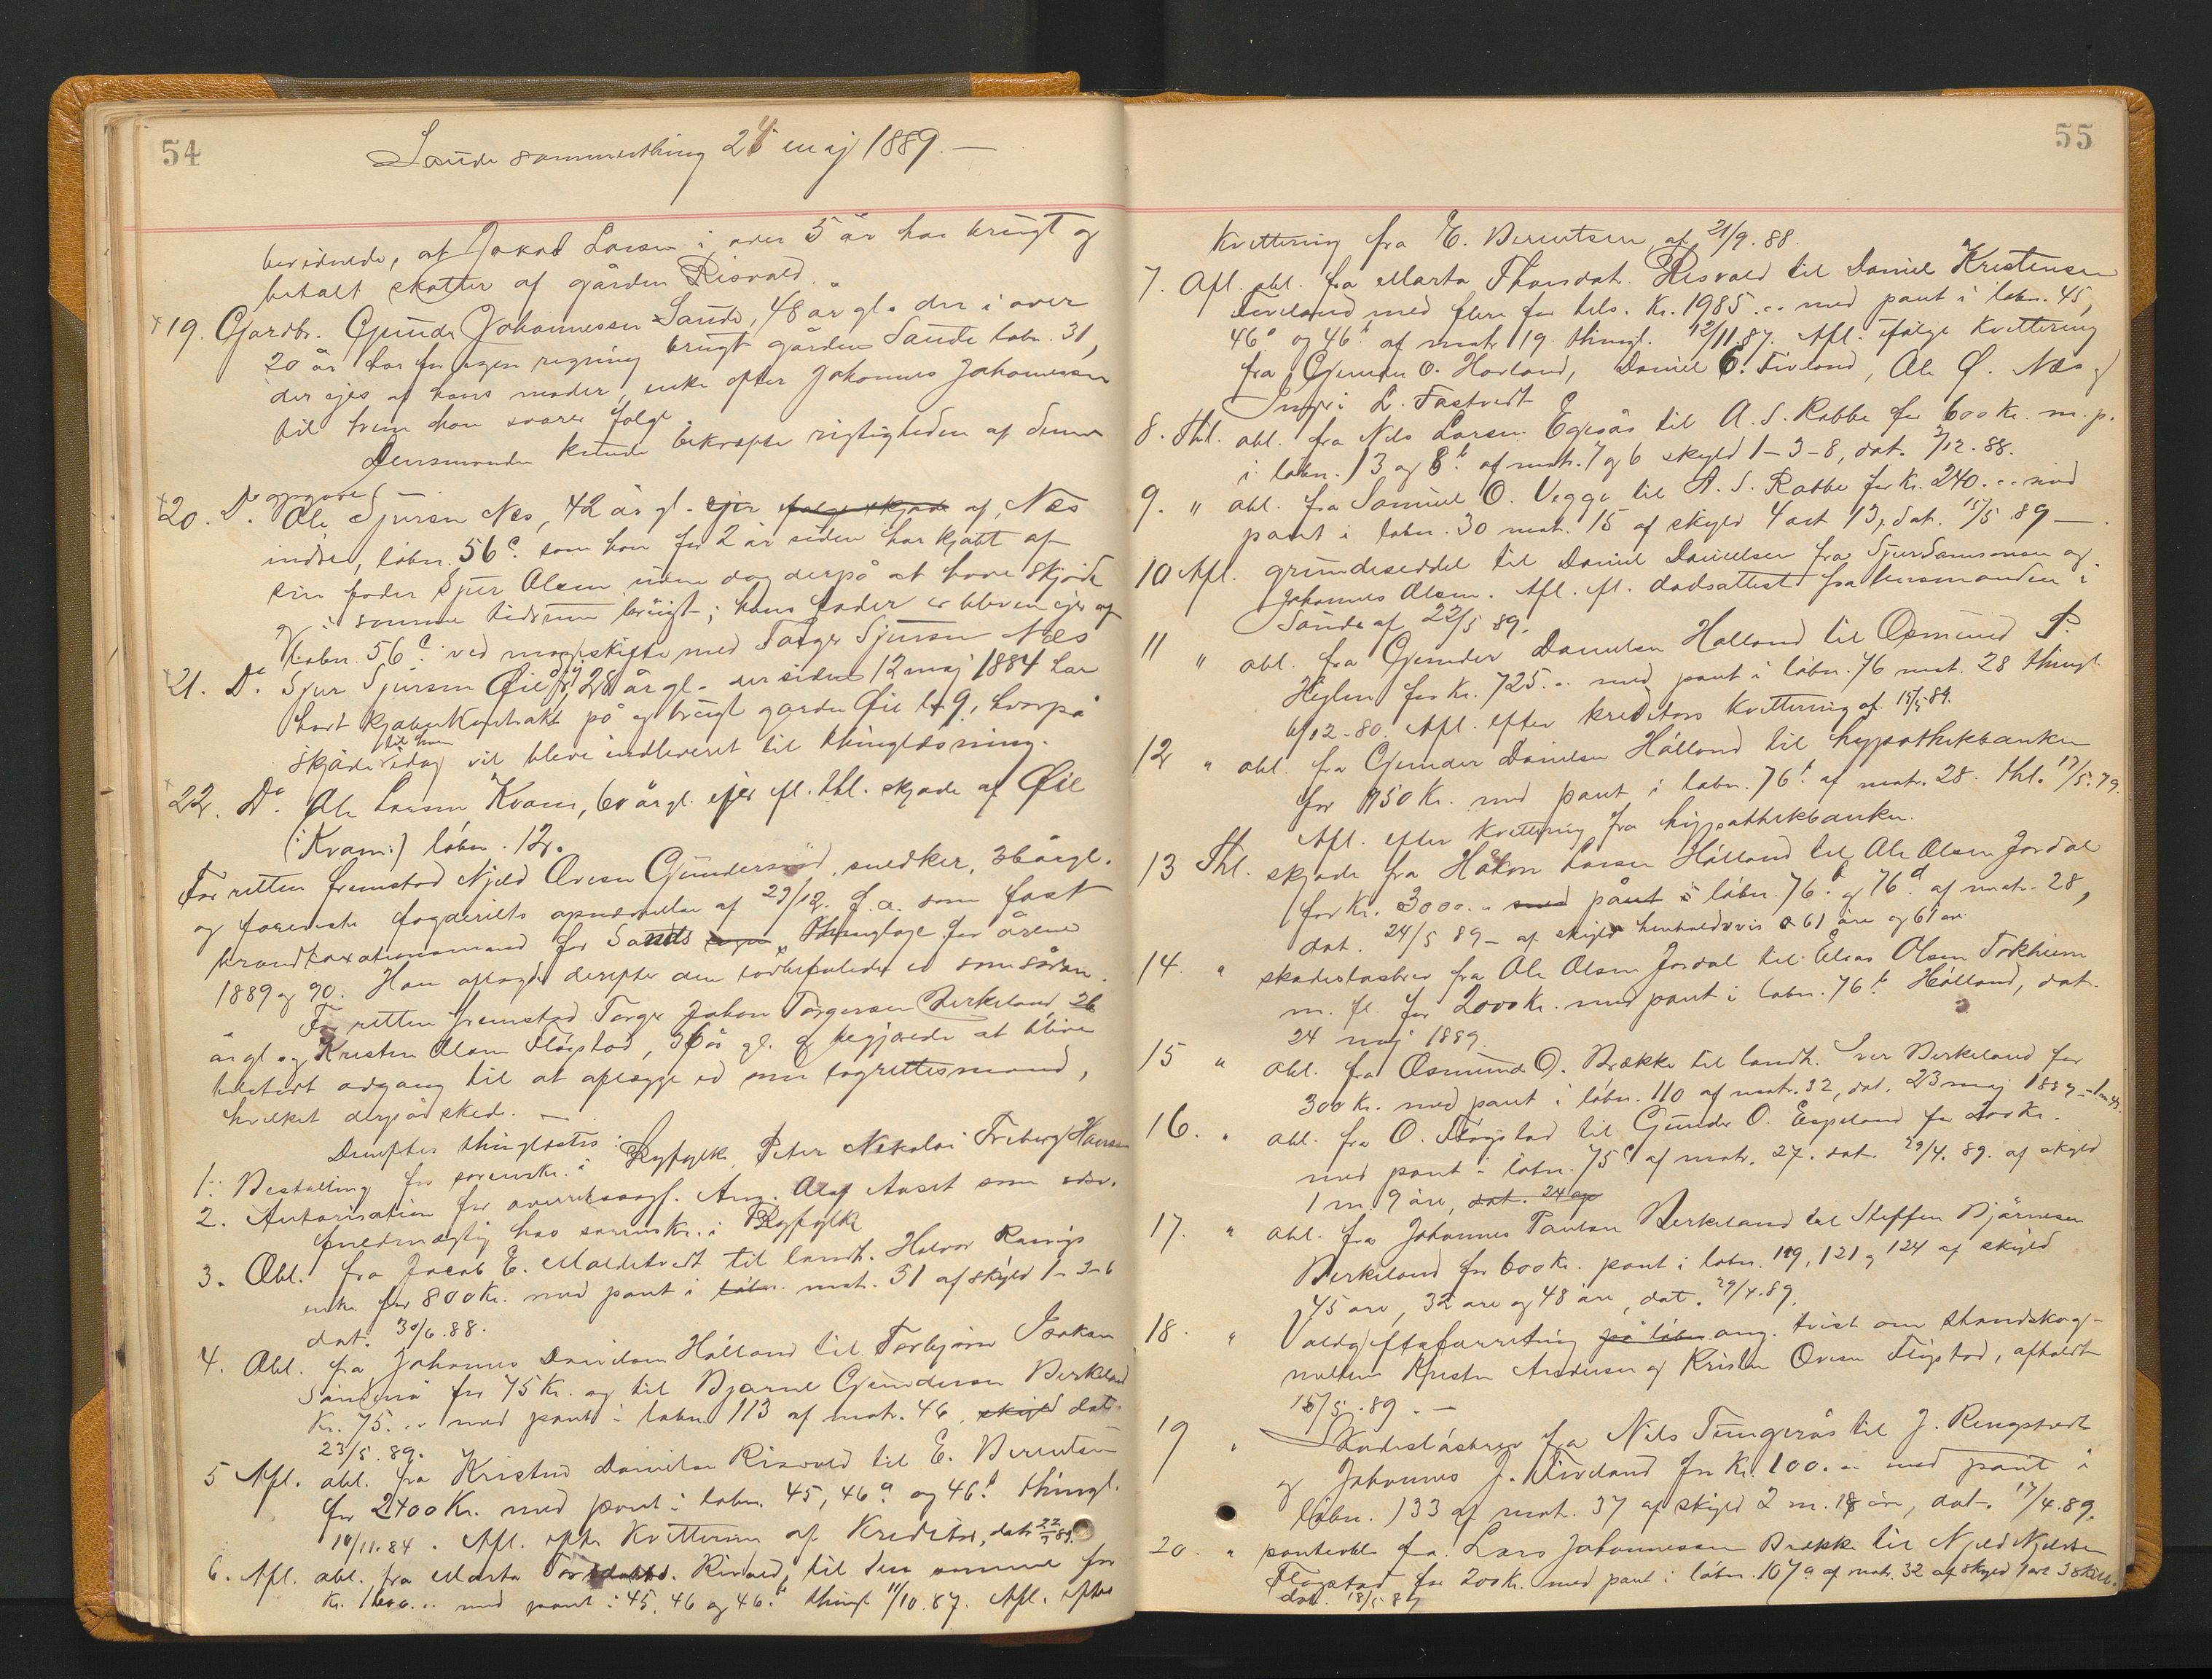 54
Saude sommerthing 24 maj 1889. —
bevidnede, at Jakob Larsen i over 5 år har brugt og
betalt skatter af gården Risvold.
19. Gardbr. Gunder Johannessen Saude, 48 år gl. der i over
20 år har for egen regning brugt gården Saude løbn. 31,
der ejes af hans moder, enke efter Johannes Johannessen
til hvem han svarer følge.
Lensmanden kunde bekræfte rigtigheden af denne
opgave. —
20. Do. Ole Sjursen Næs, 42 år gl. ejer ifølge skjøde af Næs
indre, løbn. 56c. som han for 2 år siden har kjøbt af
sin fader Sjur Olsen uden dog derpå at have skjøde
og i samme tidsrum brugt; hans fader er bleven ejer af
løbn. 56c. ved mageskifte med Torger Sjursen Næs
21. Do. Sjur Sjursen Øie, 28 år gl. der siden 12 maj 1884 har
havt kjøbekontrakt på og brugt gården Øie l. 9, hvorpå
skjøde til ham idag vil blive indleveret til thinglæsning.
22. Do. Ole Larsen Kvam, 60 år gl. ejer efl. thl. skjøde af Øie
(: Kvam :) løbn. 12.
For retten fremstod Njeld Ovesen Gundersrød, snedker, 36 år gl.
og foreviste fogderiets opnævnelse af 29/12 f. a. som fast
brandtaxationsmand for Sands thinglag for årene
1889 og 90. Han aflagde derefter den lovbefalede ed som sådan.
For retten fremstod Torger Johan Torgersen Birkeland, 26
år gl. og Kristen Olsen Fløgstad, 36 år gl. og begjærede at blive
tilstedt adgang til at aflægge ed som lagrettesmand,
hvilket derpå skede. —
Derefter thinglæstes:
1. Bestalling for sorenskr. i Ryfylke, Peter Nikolai Friberg Hansen
2. Autorisation for overretssagf. Aug. Olaf Aaset som edsv.
fuldmægtig hos sorenskr. i Ryfylke
3. Obl. fra Jacob E. Maldetvedt til landh. Halvor Ravnjs
enke for 800 Kr. med pant i løbn. mat. 51 af skyld 1-3-6
dat. 30/6.88.
4. Obl. fra Johannes Danielsen Hålland til Torbjørn Isaksen
Sandsnå for 75 Kr. og til Bjarne Gundersen Birkeland
Kr. 75... med pant i løbn 113 af matr. 46, skyld dat.
23/5.89.
5 Afl. obl. fra Kristen Danielsen Risvold til E. Berentsen
for 2400 Kr. med pant i løbn. 45, 46a. og 46b. thingl.
10/11.84. Afl. efter Kvittering af Kreditor, dat 22/5 89.
6. Afl. obl. fra Marta Torsdatter Risvold, til den samme for
Kr. 1600... med pant i 45, 46 og 46b. thingl. 11/10.87. Afl. efter
55
Kvittering fra E. Berentsen, af 21/9.88.
7. Afl. obl. fra Marta Thorsdat. Risvold til Daniel Kristensen
Tiveland med flere for tils. Kr. 1985... med pant i løbn. 45,
46a og 46b. af matr 19 thingl. 12/11.87. Afl. ifølge Kvittering
fra Gunder O. Havland, Daniel C. Tivland, Ole Ø. Næs og
Ingri L. Fastvedt
8. Thl. obl. fra Nils Larsen Egesås til A. S. Rabbe for 600 Kr. m. p.
i løbn. 13 og 8b. af matr. 7 og 6 skyld 1-3-8, dat. 7/12.88.
9. " obl. fra Samuel O. Vegge til A. S. Rabbe for Kr. 240... med
pant i løbn. 30 matr. 15 af skyld 4 ort 13, dat. 15/5 89 —
10 Afl. grundeseddel til Daniel Danielsen fra Sjur Samsonsen og
Johannes Olsen. Afl. efl. dødsattest fra lensmanden i
Saude af 22/5 89.
11 " obl. fra Gunder Danielsen Halland til Osmund P.
Hiylen for Kr. 725... med pant i løbn. 76 mat. 28 thingl
6/12-80. Afl. efter kreditors Kvittering af 15/5 89.
12 " obl. fra Gunder Danielsen Hålland til hypothekbanken
for 950 Kr. med pant i løbn. 76b. af matr. 28. thl. 17/5.79.
Afl. efter Kvittering fra hypothekbanken.
13 Thl. skjøde fra Håkon Larsen Hålland til Ole Olsen Jordal
for Kr. 3000... med pant i løbn. 76b. og 76d. af matr. 28,
dat. 24/5 89 — af skyld henholdsvis 0-61 øre og 61 øre
14. " skadesløsbrev fra Ole Olsen Jordal til Elias Olsen Tokheim
m. fl. for 2000 Kr. med pant i løbn. 76b. Hålland, dat.
24 maj 1889.
15 " obl. fra Osmund O. Bække til landh. Iver Birkeland for
300 Kr. med pant i løbn. 110 af matr. 32, dat. 23 maj 1889
16. " obl. fra O. Fløgstad til Gunder O. Espeland for 200 Kr.
med pant i løbn. 75c af matr. 27. dat. 29/4.89. af skyld
1 m 9 øre, dat. 24 ap
17. " obl. fra Johannes Paulsen Birkeland til Steffen Bjårnesen
Birkeland for 600 Kr. pant i løbn. 119, 121 og 124 af skyld
45 øre, 32 øre og 48 øre, dat. 29/4.89.
18. " Voldgiftsforretning på løbn. ang. tvist om strandskog-
mellem Kristen Andersen og Kristen Ovesen Fløgstad, afholdt
15/5.89. —
19 " Skadesløsbrev fra Nils Tungerås til J. Ringstvedt
og Johannes J. Tiveland for Kr. 100... med pant i
løbn. 133 af mat. 37 af skyld 2 m. 18 øre, dat. 17/4.89.
20. " panteobl. fra Lars Johannessen Brekke til Njeld Njeldsen
Fløgstad for 200 Kr. med pant i løbn. 107a af matr. 32 af skyld 1 ort 3 skill.
dat. 18/5.89